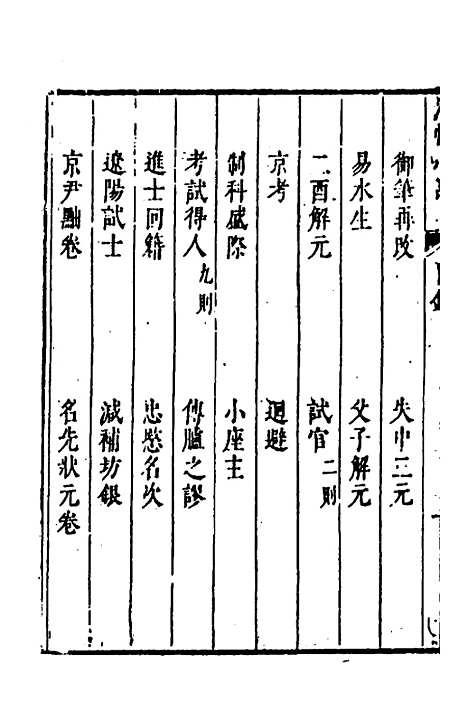 御筆再改　失中三元
易水生　父子解元
二酉解元　試官二則
京考　迴避
制科盛際　小座主
考試得人九則　傳臚之謬
進士囘籍　忠愍名次
遼陽試士　減補坊銀
京尹黜卷　名先狀元卷